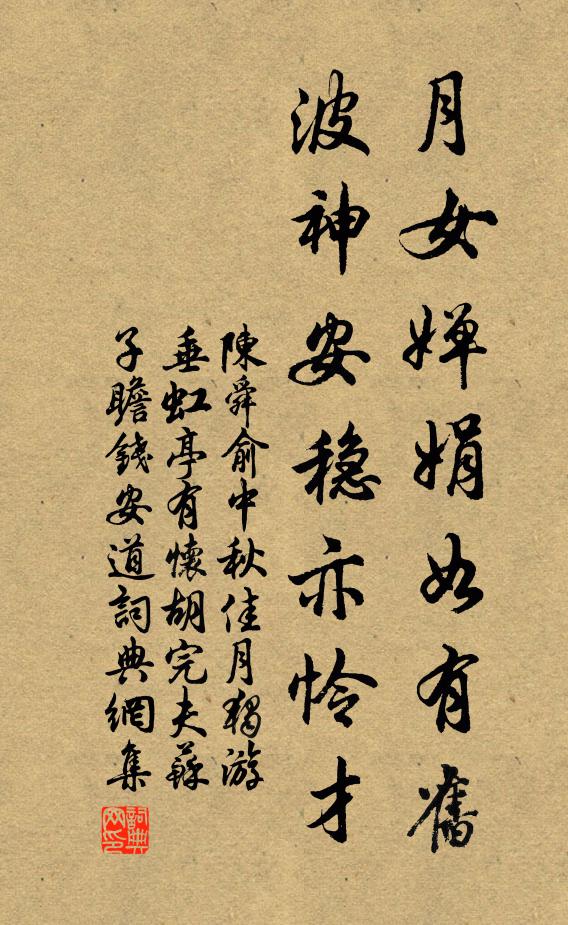 月女婵娟如有舊
波神安穏亦怜才
陳舜俞中秋佳月獨游
垂虹亭有懷胡完夫蘇
子瞻錢安道詞典網集
詞典网印